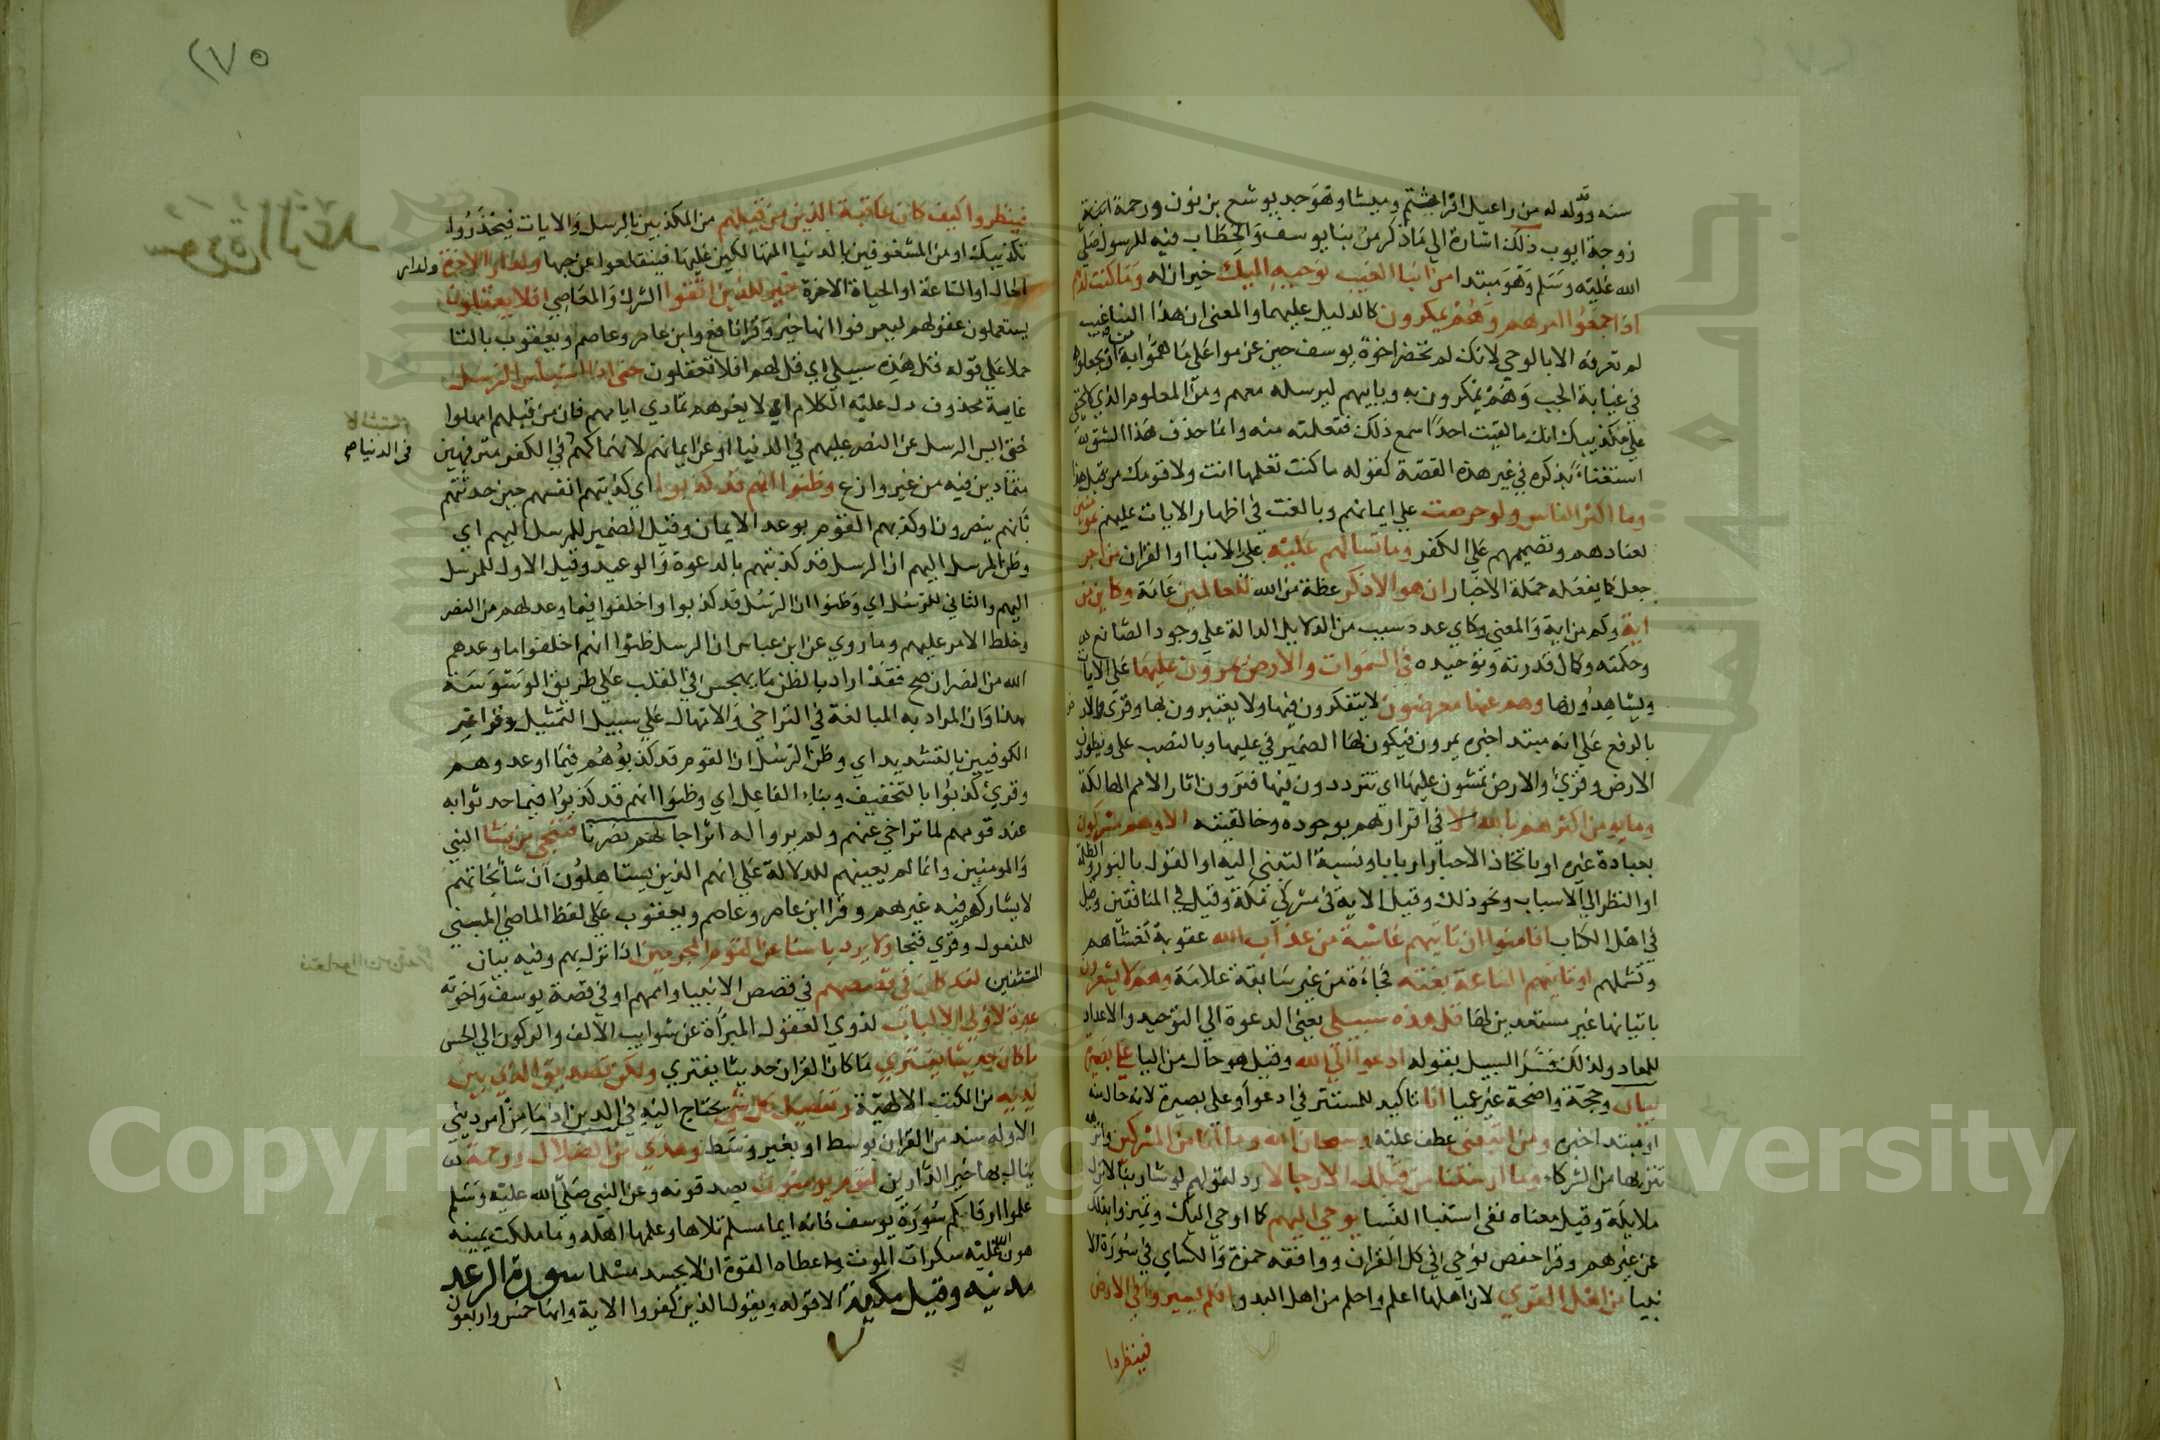 سنه وولد له من راعيل افراثيم وميشا وهو جد يوشع بن نون ورحمة امراة
زوجة ايوب ذلك اشارة الي ما ذكر من نبا يوسف والخطاب فيه للرسول صلي
الله عليه وسلم وهو مبتدا من انبا الغيب نوحيه اليك خبران له وما كنت لديهم
اذ اجمعوا امرهم وهم يمكرون كالدليل عليهما والمعني ان هذا النبا غيب
لم تعرفه الا بالوحي لانك لم تحضر اخوة يوسف حين عزموا علي ما هموا به من ان يجعلوه
في غيابة الجب وهم يمكرون به وبابيهم ليرسله معهم ومن المعلوم الذي لا يخفي
علي مكذبيك انك ما لقيت احدا سمع ذلك فتعلمته منه وانما حذف هذا الشق
استغناء بذكره في غير هذه القصة كقوله ما كنت تعلمها انت ولا قومك من قبل هذا
وما اكثر الناس ولو حرصت علي ايمانهم وبالغت في اظهار الايات عليهم بمومنين
لعنادهم وتصميمهم علي الكفر وما تسالهم عليه علي الانبا او القران من اجر
جعل كما يفعله حملة الاخبار ان هو الا ذكر عظة من الله للعالمين عامة وكاين من
اية وكم من اية والمعني وكاي عدد سبب من الدلايل الدالة علي وجود الصانع
وحكمته وكمال قدرته وتوحيده في السموات والارض يمرون عليها علي الايات
ويشاهدونها وهم عنها معرضون لا يتفكرون فيها ولا يعتبرون بها وقري والارض
بالرفع علي انه مبتدا خبره يمرون فيكون لها الضمير في عليها وبالنصب علي ويطون
الارض وقري والارض تمشون عليها اي تترددون فيها فترون اثار الامم الهالكة
وما يومن اكثرهم بالله الا في اقرارهم بوجوده وخالقيته الا وهم مشركون
بعبادة غيره او باتخاذ الاحبار اربابا ونسبة التبني اليه او القول بالنور والظلمة
او النظر الي الاسباب ونحو ذلك وقيل الاية في مشركي مكة وقيل في المنافقين وقيل
في اهل الكتاب افامنوا ان تاتيهم غاشية من عذاب الله عقوبة تغشاهم
وتشملهم او تاتيهم الساعة بغتة فجاءة من غير سابقة علامة وهم لا يشعرون
باتيانها غير مستعدين لها قل هذه سبيلي يعني الدعوة الي التوحيد والاعداد
للمعاد ولذلك فسر السبيل بقوله ادعوا الي الله وقيل هو حال من اليا علي بصيرة
بيان وحجة واضحة غير عميا انا تاكيد للمستتر في ادعوا وعلي بصيرة لانه حال منه
او مبتدا خبره ومن اتبعني عطف عليه وسبحان الله وما انا من المشركين وانزهه
تنزيها من الشركاء وما ارسلنا من قبلك الا رجالا رد لقولهم لو شا ربنا لانزل
ملايكة وقيل معناه نفي استنبا النسا يوحي اليهم كما اوحي اليك وتميزوا بذلك
عن غيرهم وقرا حفص نوحي في كل القران ووافقه حمزة والكساي في سورة الا
نبيا من اهل القري لان اهلها اعلم واحلم من اهل البدو افلم يسيروا في الارض
فينظروا
٢٧٥
سورة الرعد
فينظروا كيف كان عاقبة الذين من قبلهم من المكذبين بالرسل والايات فيحذروا
تكذيبك او من المشغوفين بالدنيا المتهالكين عليها فينقلعوا عن حبها ولدار الاخرة ولدار
الحال او الساعة او الحياة الاخرة خير للذين اتقوا الشرك والمعاصي افلا يعقلون
يستعملون عقولهم ليعرفوا انها خير وقرا نافع وابن عامر وعاصم ويعقوب بالتا
حملا علي قوله قل هذه سبيلي اي قل لهم افلا تعقلون حتي اذا استيأس الرسل
غاية محذوف دل عليه الكلام اي لا يغررهم تمادي ايامهم فان من قبلهم امهلوا
حتي ايس الرسل عن النصر عليهم في الدنيا او عن ايمانهم لانهماكهم في الكفر مترفهين
في الدنيا صح
متمادين فيه من غير وازع وظنوا انهم قد كذبوا اي كذبتهم انفسهم حين حدثتهم
بانهم ينصرون او كذبهم القوم بوعد الايمان وقيل الضمير للمرسل اليهم اي
وظن المرسل اليهم ان الرسل قد كذبتهم بالدعوة والوعيد وقيل الاول للمرسل
اليهم والثاني للرسل اي وظنوا ان الرسل قد كذبوا واخلفوا فيما وعد لهم من النصر
وخلط الامر عليهم وما روي عن ابن عباس ان الرسل ظنوا انهم اخلفوا ما وعدهم
الله من النصر ان صح فقد اراد بالظن ما يهجس في القلب علي طريق الوسوسة
هذا وان المراد به المبالغة في التراخي والامهال علي سبيل التمثيل وقرا غير
الكوفيين بالتشديد اي وظن الرسل ان القوم قد كذبوهم فيما اوعدوهم
وقري كذبوا بالتخفيف وبناء الفاعل اي وظنوا انهم قد كذبوا فيما حدثوا به
عند قومهم لما تراخي عنهم ولم يروا له اثرا جاهم نصرنا فننجي من نشا النبي
والمومنين وانما لم يعينهم للدلالة علي انهم الذين يستاهلون ان نشا نجاتهم
لا يشاركهم فيه غيرهم وقرا ابن عامر وعاصم ويعقوب علي لفظ الماضي المبني
للمفعول وقري فنجا ولا يرد باسنا عن القوم المجرمين اذا نزل بهم وفيه بيان
المشيئين لقد كان في قصصهم في قصص الانبيا واممهم او في قصة يوسف واخوته
عبرة لاولي الالباب لذوي العقول المبراة عن شوايب الالف والركون الي الحس
ما كان حديثا يفتري ما كان القران حديثا يفتري ولكن تصديق الذي بين
يديه من الكتب الالهية وتفصيل كل شي يحتاج اليه في الدين اذ ما من امر ديني
الا وله سند من القران بوسط او بغير وسط وهدي من الضلال ورحمة
ينال بها خير الدارين لقوم يومنون يصدقونه وعن النبي صلي الله عليه وسلم
علموا ارقاكم سورة يوسف فانه ايما مسلم تلاها وعلمها اهله وما ملكت يمينه
هون الله عليه سكرات الموت واعطاه القوة ان لا يحسد مسلما سورة الرعد
مدنيه وقيل مكية الا قوله ويقول الذين كفروا الاية وايها خمس واربعون
Copyright © King Saud University